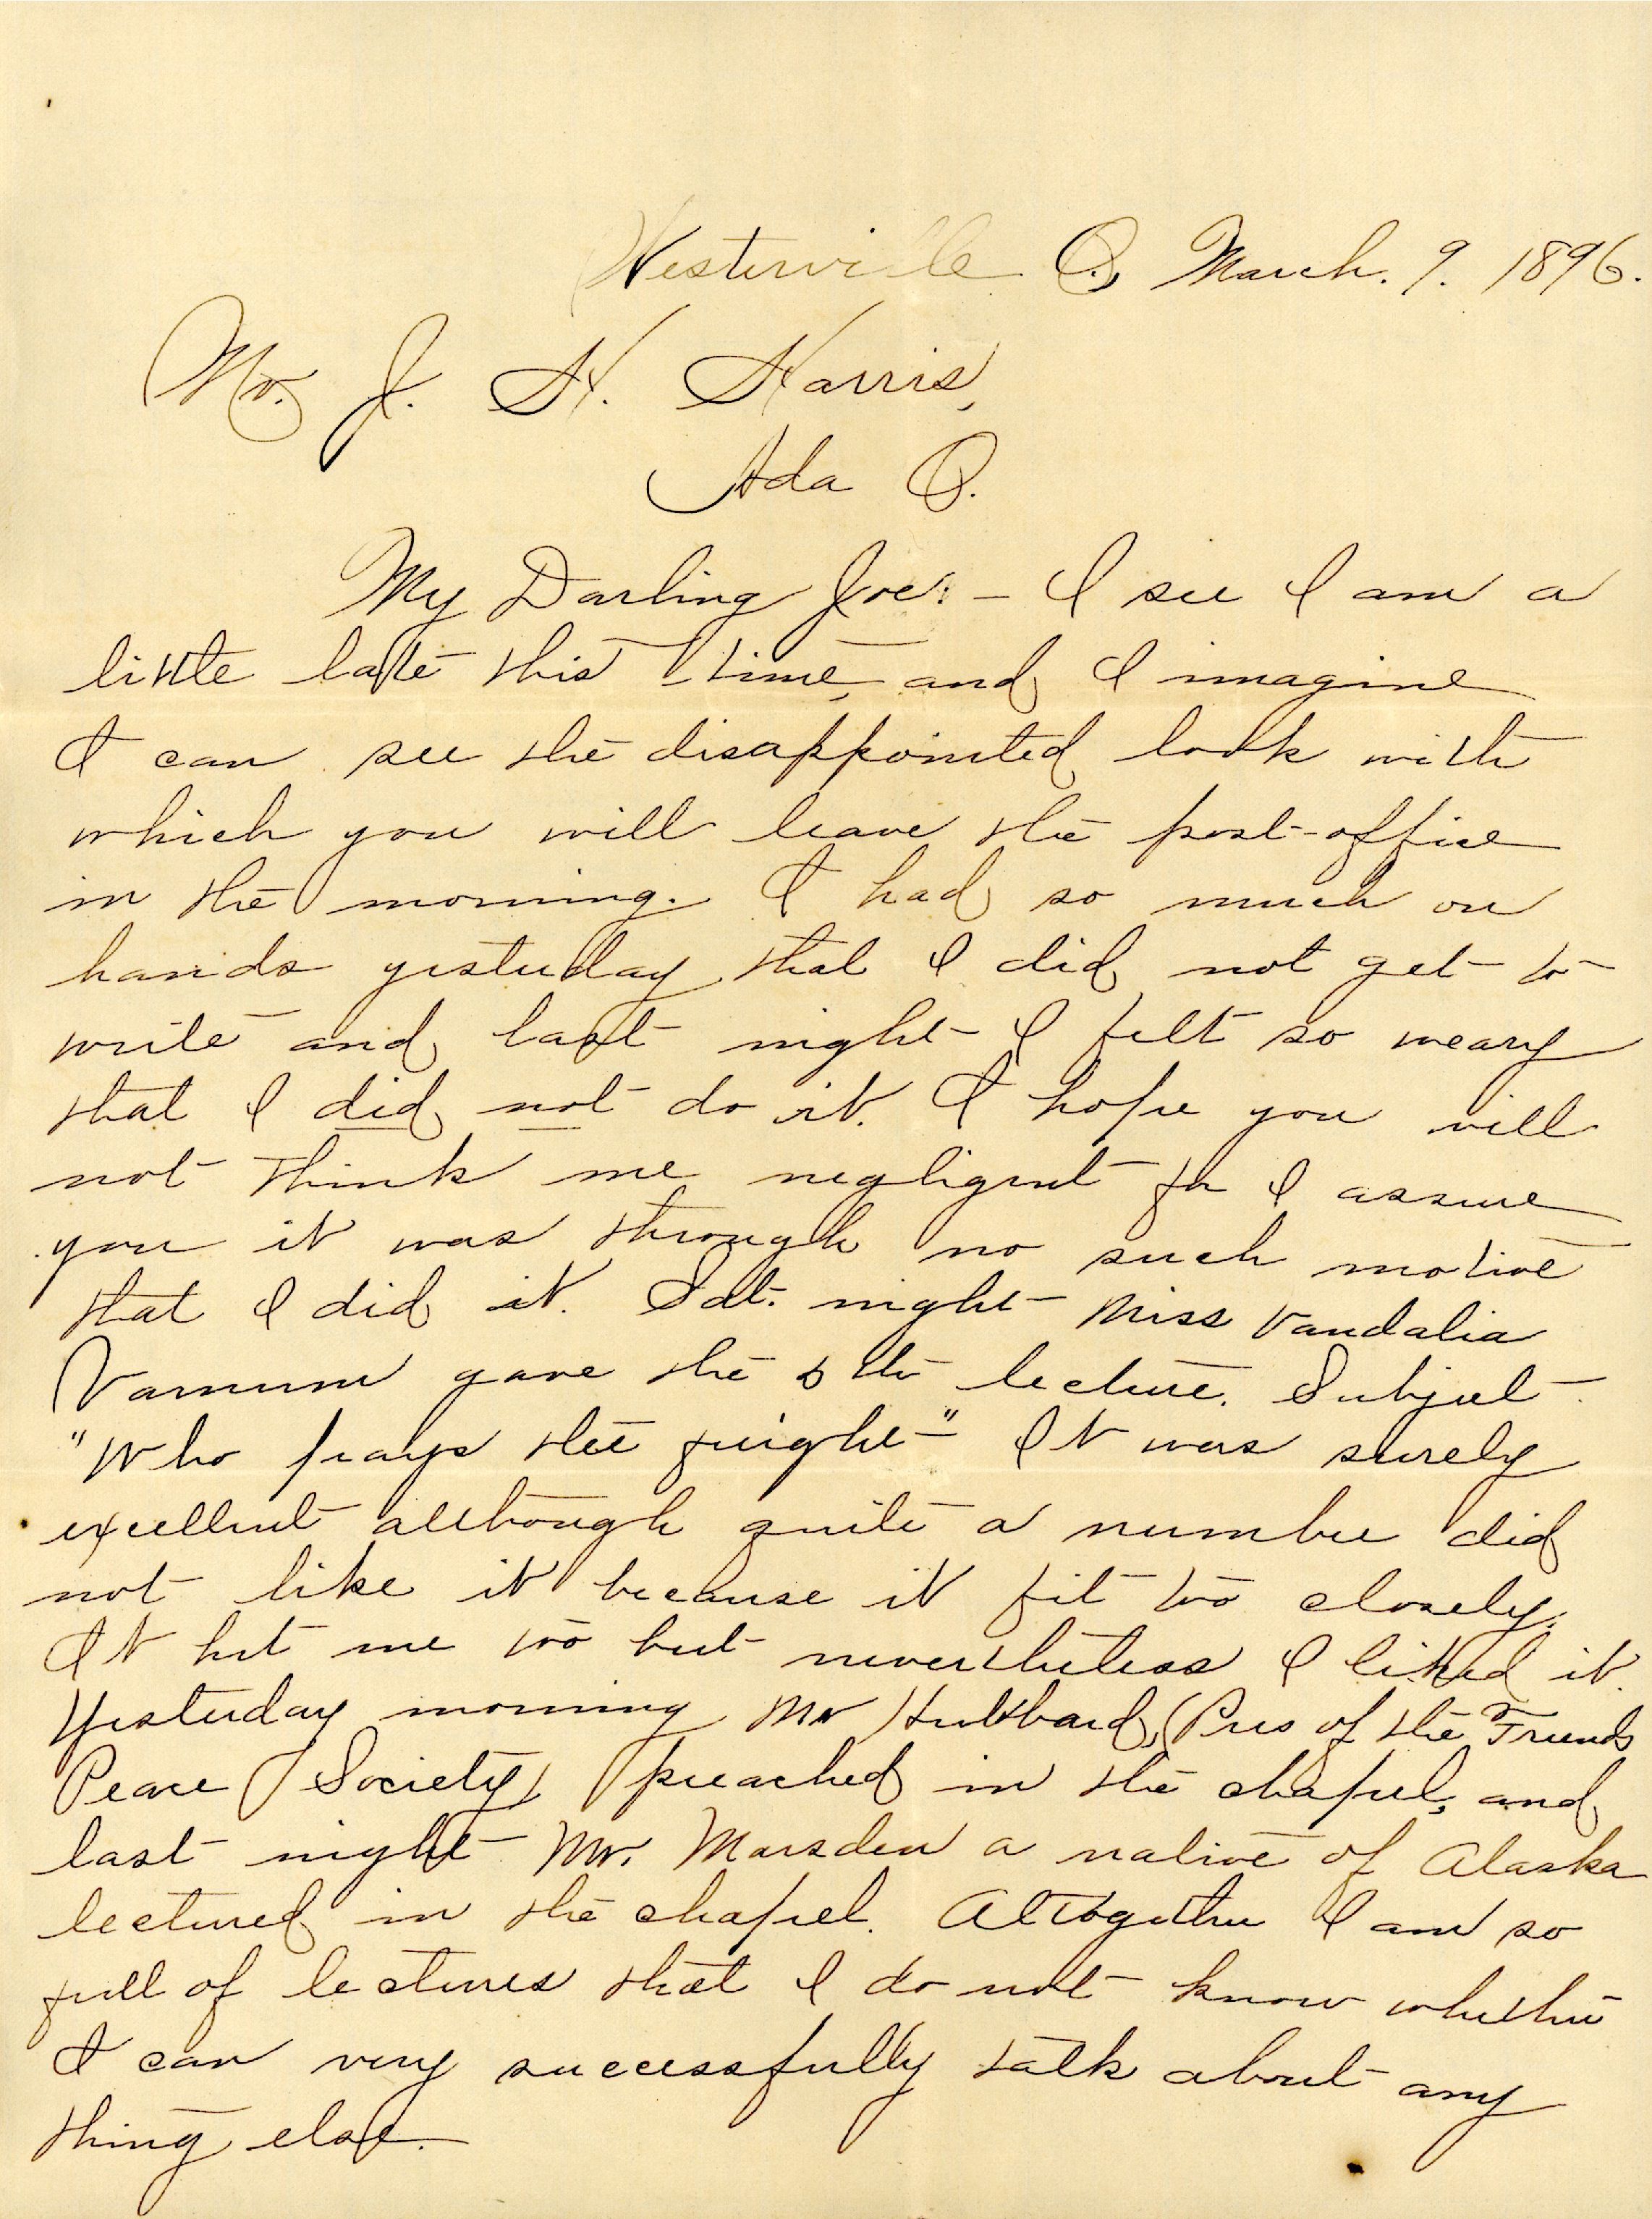 Westerville O, March. 9. 1896.
Mr. J. H. Harris,
Ada O.
My Darling Joe: - I see I am a
little late this time, and I imagine
I can see the disappointed look with
which you will leave the post-office
in the morning. I had so much on
hands yesterday that I did not get to
write and last night I felt so weary
that I did not do it. I hope you will
not think me negligent for I assure
you it was through no such motive
that I did it. Sat. night Miss Vandalia
Varnum gave the 5th lecture. Subject -
"Who pays the freight" It was surely
excellent although quite a number did
not like it because it fit too closely.
It hit me too but nevertheless I liked it.
Yesterday morning Mr Hubbard, (Pres of the Friends
Peace Society) preached in the chapel, and
last night Mr. Marsden a native of Alaska
lectured in the chapel. Altogether I am so
full of lectures that I do not know whether
I can very successfully talk about any
thing else.